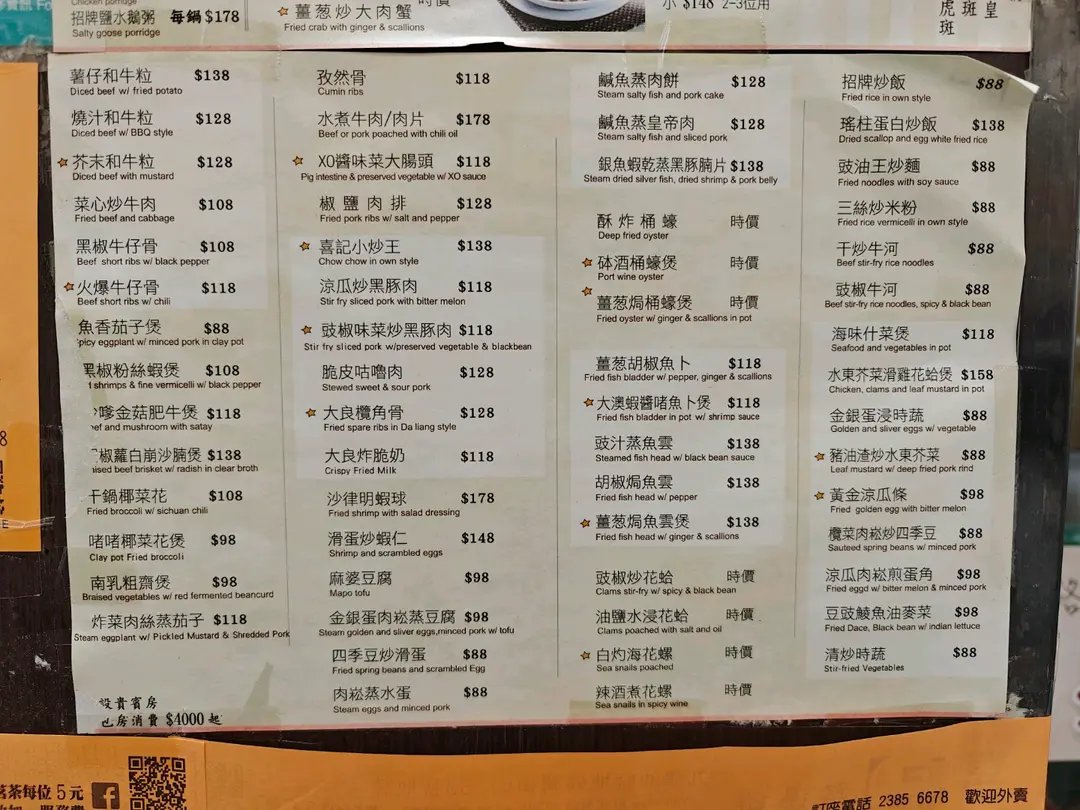 Chicken porridge
招牌鹽水鵝粥 每鍋$178
Salty goose porridge
薑葱炒大肉蟹 時價
Fried crab with ginger & scallions
小 $148 2-3位用
皇
斑
虎斑
薯仔和牛粒 $138
Diced beef w/ fried potato
燒汁和牛粒 $128
Diced beef w/ BBQ style
芥末和牛粒 $128
Diced beef with mustard
菜心炒牛肉 $108
Fried beef and cabbage
黑椒牛仔骨 $108
Beef short ribs w/ black pepper
火爆牛仔骨 $118
Beef short ribs w/ chili
魚香茄子煲 $88
picy eggplant w/ minced pork in clay pot
黑椒粉絲蝦煲 $108
shrimps & fine vermicelli w/ black pepper
嗲金菇肥牛煲 $118
eef and mushroom with satay
椒蘿白崩沙腩煲 $138
aised beef brisket w/ radish in clear broth
干鍋椰菜花 $108
Fried broccoli w/ sichuan chili
啫啫椰菜花煲 $98
Clay pot Fried broccoli
南乳粗齋煲 $98
Braised vegetables w/ red fermented beancurd
炸菜肉絲蒸茄子 $118
Steam eggplant w/ Pickled Mustard & Shredded Pork
設貴賓房
包房消費 $4000起
孜然骨 $118
Cumin ribs
水煮牛肉/肉片 $178
Beef or pork poached with chili oil
XO醬味菜大腸頭 $118
Pig intestine & preserved vegetable w/ XO sauce
椒鹽肉排 $128
Fried pork ribs w/ salt and pepper
喜記小炒王 $138
Chow chow in own style
涼瓜炒黑豚肉 $118
Stir fry sliced pork with bitter melon
豉椒味菜炒黑豚肉 $118
Stir fry sliced pork w/preserved vegetable & blackbean
脆皮咕嚕肉 $128
Stewed sweet & sour pork
大良欖角骨 $128
Fried spare ribs in Da liang style
大良炸脆奶 $118
Crispy Fried Milk
沙律明蝦球 $178
Fried shrimp with salad dressing
滑蛋炒蝦仁 $148
Shrimp and scrambled eggs
麻婆豆腐 $98
Mapo tofu
金銀蛋肉崧蒸豆腐 $98
Steam golden and sliver eggs,minced pork w/ tofu
四季豆炒滑蛋 $88
Fried spring beans and scrambled Egg
肉崧蒸水蛋 $88
Steam eggs and minced pork
鹹魚蒸肉餅 $128
Steam salty fish and pork cake
鹹魚蒸皇帝肉 $128
Steam salty fish and sliced pork
銀魚蝦乾蒸黑豚腩片 $138
Steam dried silver fish, dried shrimp & pork belly
酥炸桶蠔 時價
Deep fried oyster
砵酒桶蠔煲 時價
Port wine oyster
薑葱焗桶蠔煲 時價
Fried oyster w/ ginger & scallions in pot
薑葱胡椒魚卜 $118
Fried fish bladder w/ pepper, ginger & scallions
大澳蝦醬啫魚卜煲 $118
Fried fish bladder in pot w/ shrimp sauce
豉汁蒸魚雲 $138
Steamed fish head w/ black bean sauce
胡椒焗魚雲 $138
Fried fish head w/ pepper
薑葱焗魚雲煲 $138
Fried fish head w/ ginger & scallions
豉椒炒花蛤 時價
Clams stir-fry w/ spicy & black bean
油鹽水浸花蛤 時價
Clams poached with salt and oil
白灼海花螺 時價
Sea snails poached
辣酒煮花螺 時價
Sea snails in spicy wine
招牌炒飯 $88
Fried rice in own style
瑤柱蛋白炒飯 $138
Dried scallop and egg white fried rice
豉油王炒麵 $88
Fried noodles with soy sauce
三絲炒米粉 $88
Fried rice vermicelli in own style
干炒牛河 $88
Beef stir-fry rice noodles
豉椒牛河 $88
Beef stir-fry rice noodles, spicy & black bean
海味什菜煲 $118
Seafood and vegetables in pot
水東芥菜滑雞花蛤煲 $158
Chicken, clams and leaf mustard in pot
金銀蛋浸時蔬 $88
Golden and sliver eggs w/ vegetable
豬油渣炒水東芥菜 $88
Leaf mustard w/ deep fried pork rind
黃金涼瓜條 $98
Fried golden egg with bitter melon
欖菜肉崧炒四季豆 $88
Sauteed spring beans w/ minced pork
涼瓜肉崧煎蛋角 $98
Fried eggd w/ bitter melon & minced pork
豆豉鯪魚油麥菜 $98
Fried Dace, Black bean w/ indian lettuce
清炒時蔬 $88
Stir-fried Vegetables
茗茶每位5元
訂座電話 2385 6678 歡迎外賣